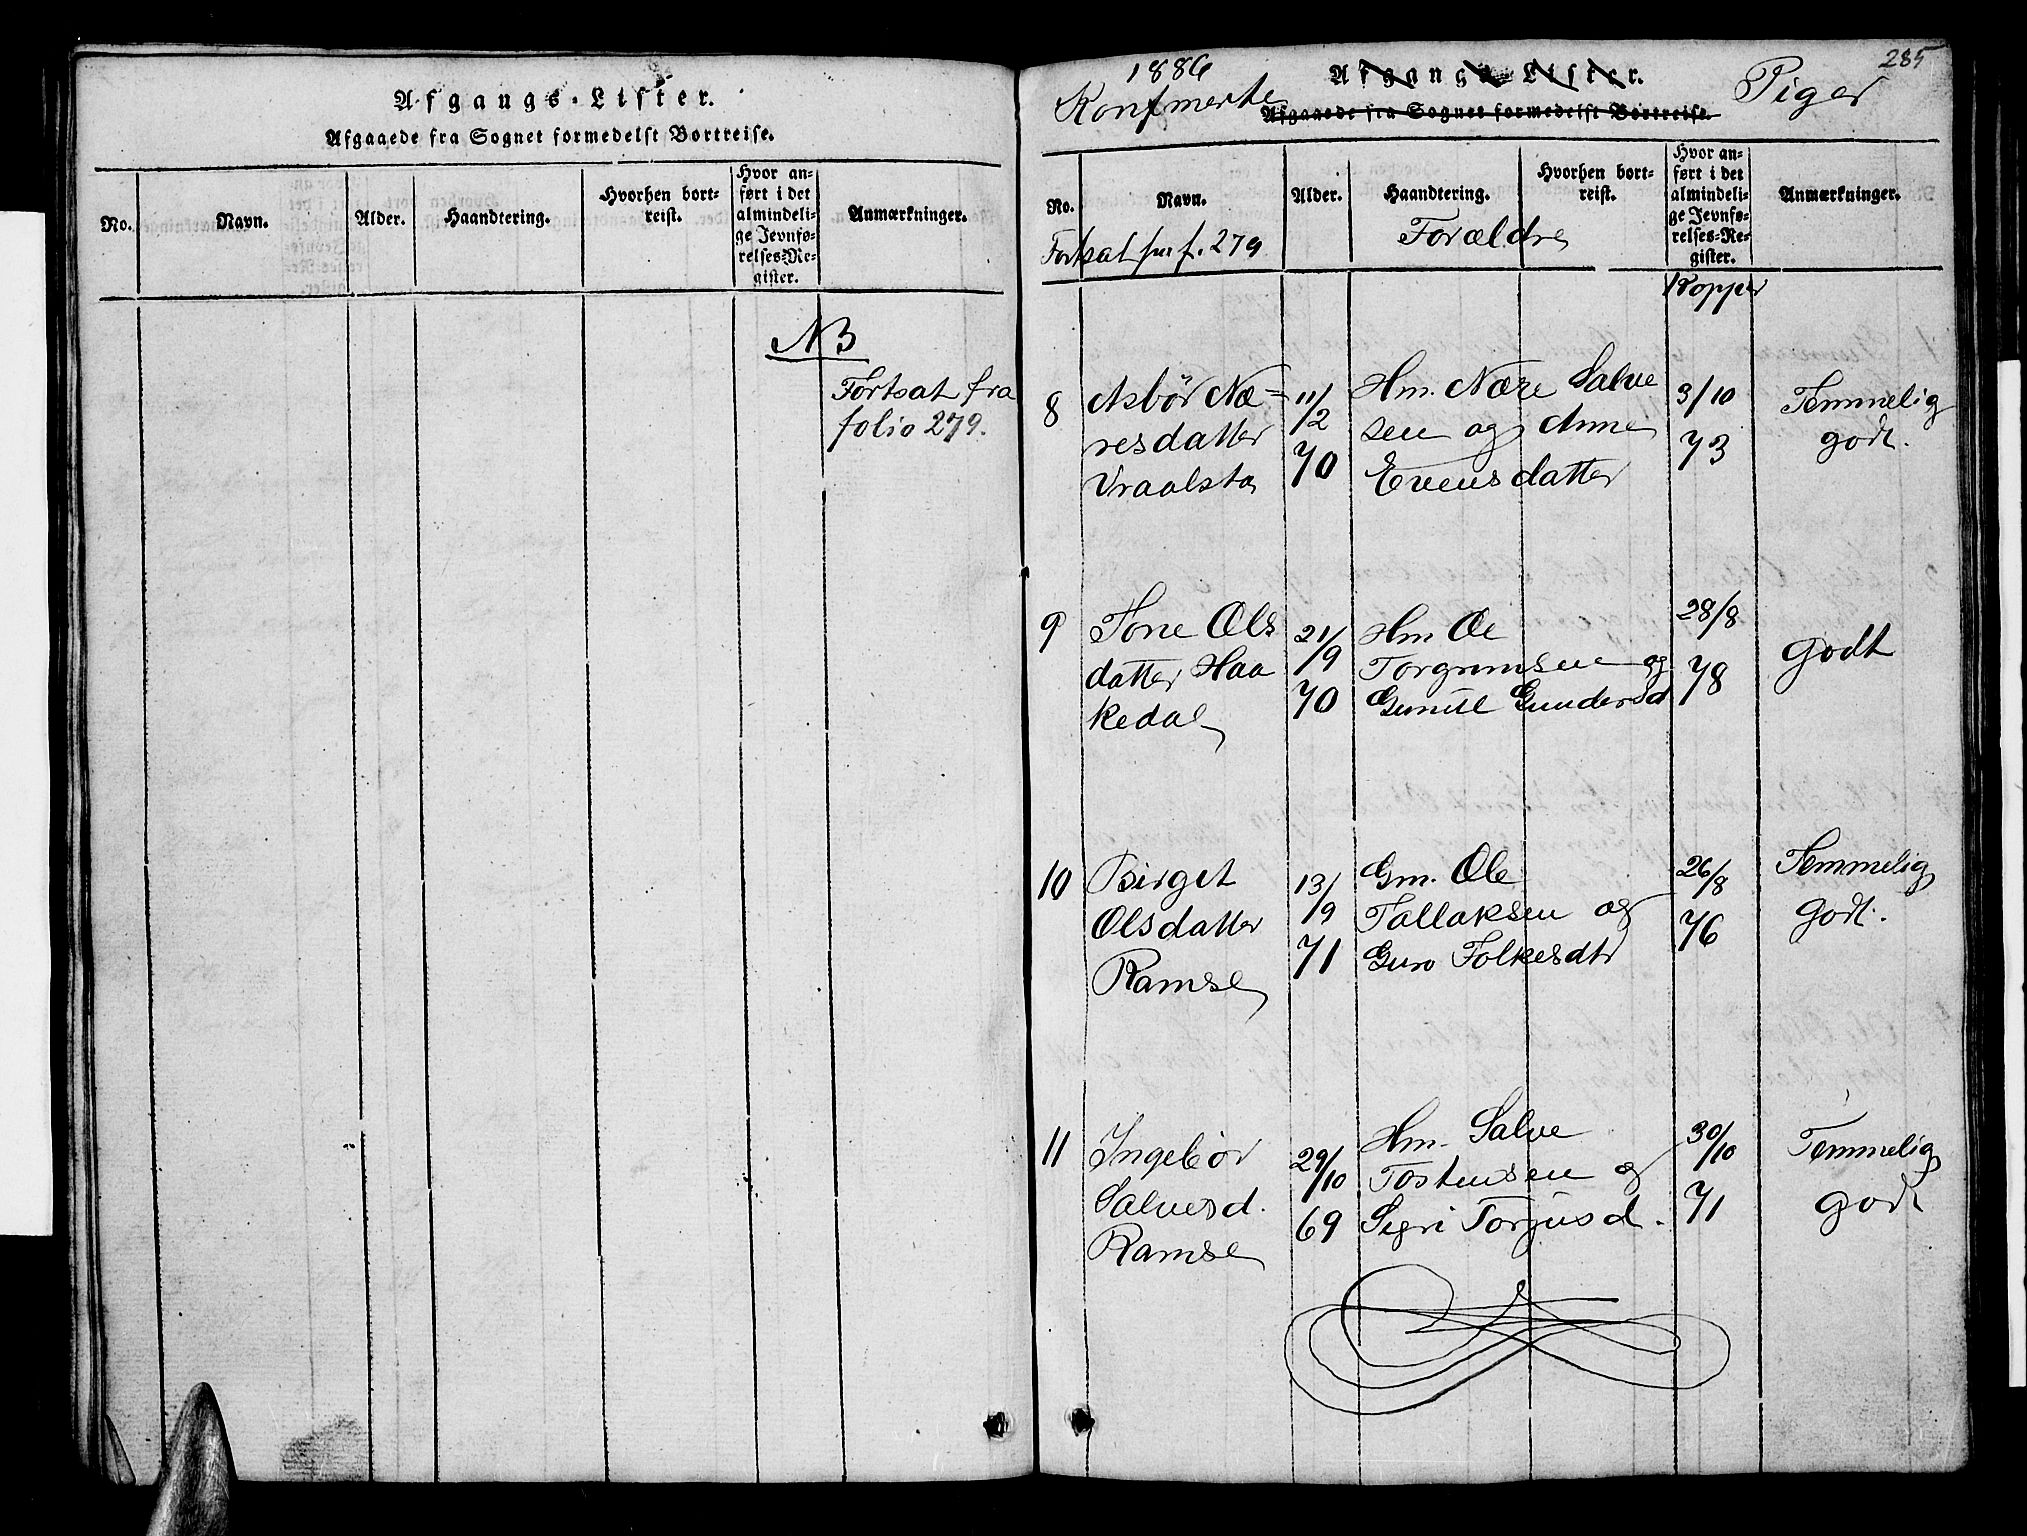 Afgangs-Lister.
Afgaaede fra Sognet formedelst Bortreise.
No.
Navn.
Alder.
Haandtering.
Hvorhen bort-
reist.
Hvor an-
ført i det
almindeli-
ge Jevnfø-
relses-Re-
gister.
Anmærkninger.
NB
Fortsat fra
folio 279.
285
1886
Afgangs-Lister.
Konfmerte
Piger
Afgaaede fra Sognet formedelst Bortreise.
No.
Navn.
Alder.
Haandtering.
Hvorhen bort-
reist.
Hvor an-
ført i det
almindeli-
ge Jevnfø-
relses-Re-
gister.
Anmærkninger.
Fortsat f. 279
Forældre
Kopper
8
Asbør Næ-
resdatter
Vraalsta
11/2
70
Hm. Nære Salve
sen og Anne
Evensdatter
3/10
73
Temmelig
godt.
9
Tone Ols
datter Haa
kedal
21/9
70
Hm. Ole
Torgrimsen og
Gunild Gundersd
28/8
78
Godt
10
Birget
Olsdatter
Ramse
13/9
71
Gm. Ole
Tallaksen og
Guro Folkesdtr
26/8
76
Temmelig
Godt.
11
Ingebør
Salvesd.
Ramse
29/10
69
Hm. Salve
Tostensen og
Segri Torjusd.
30/10
71
Temmelig
godt